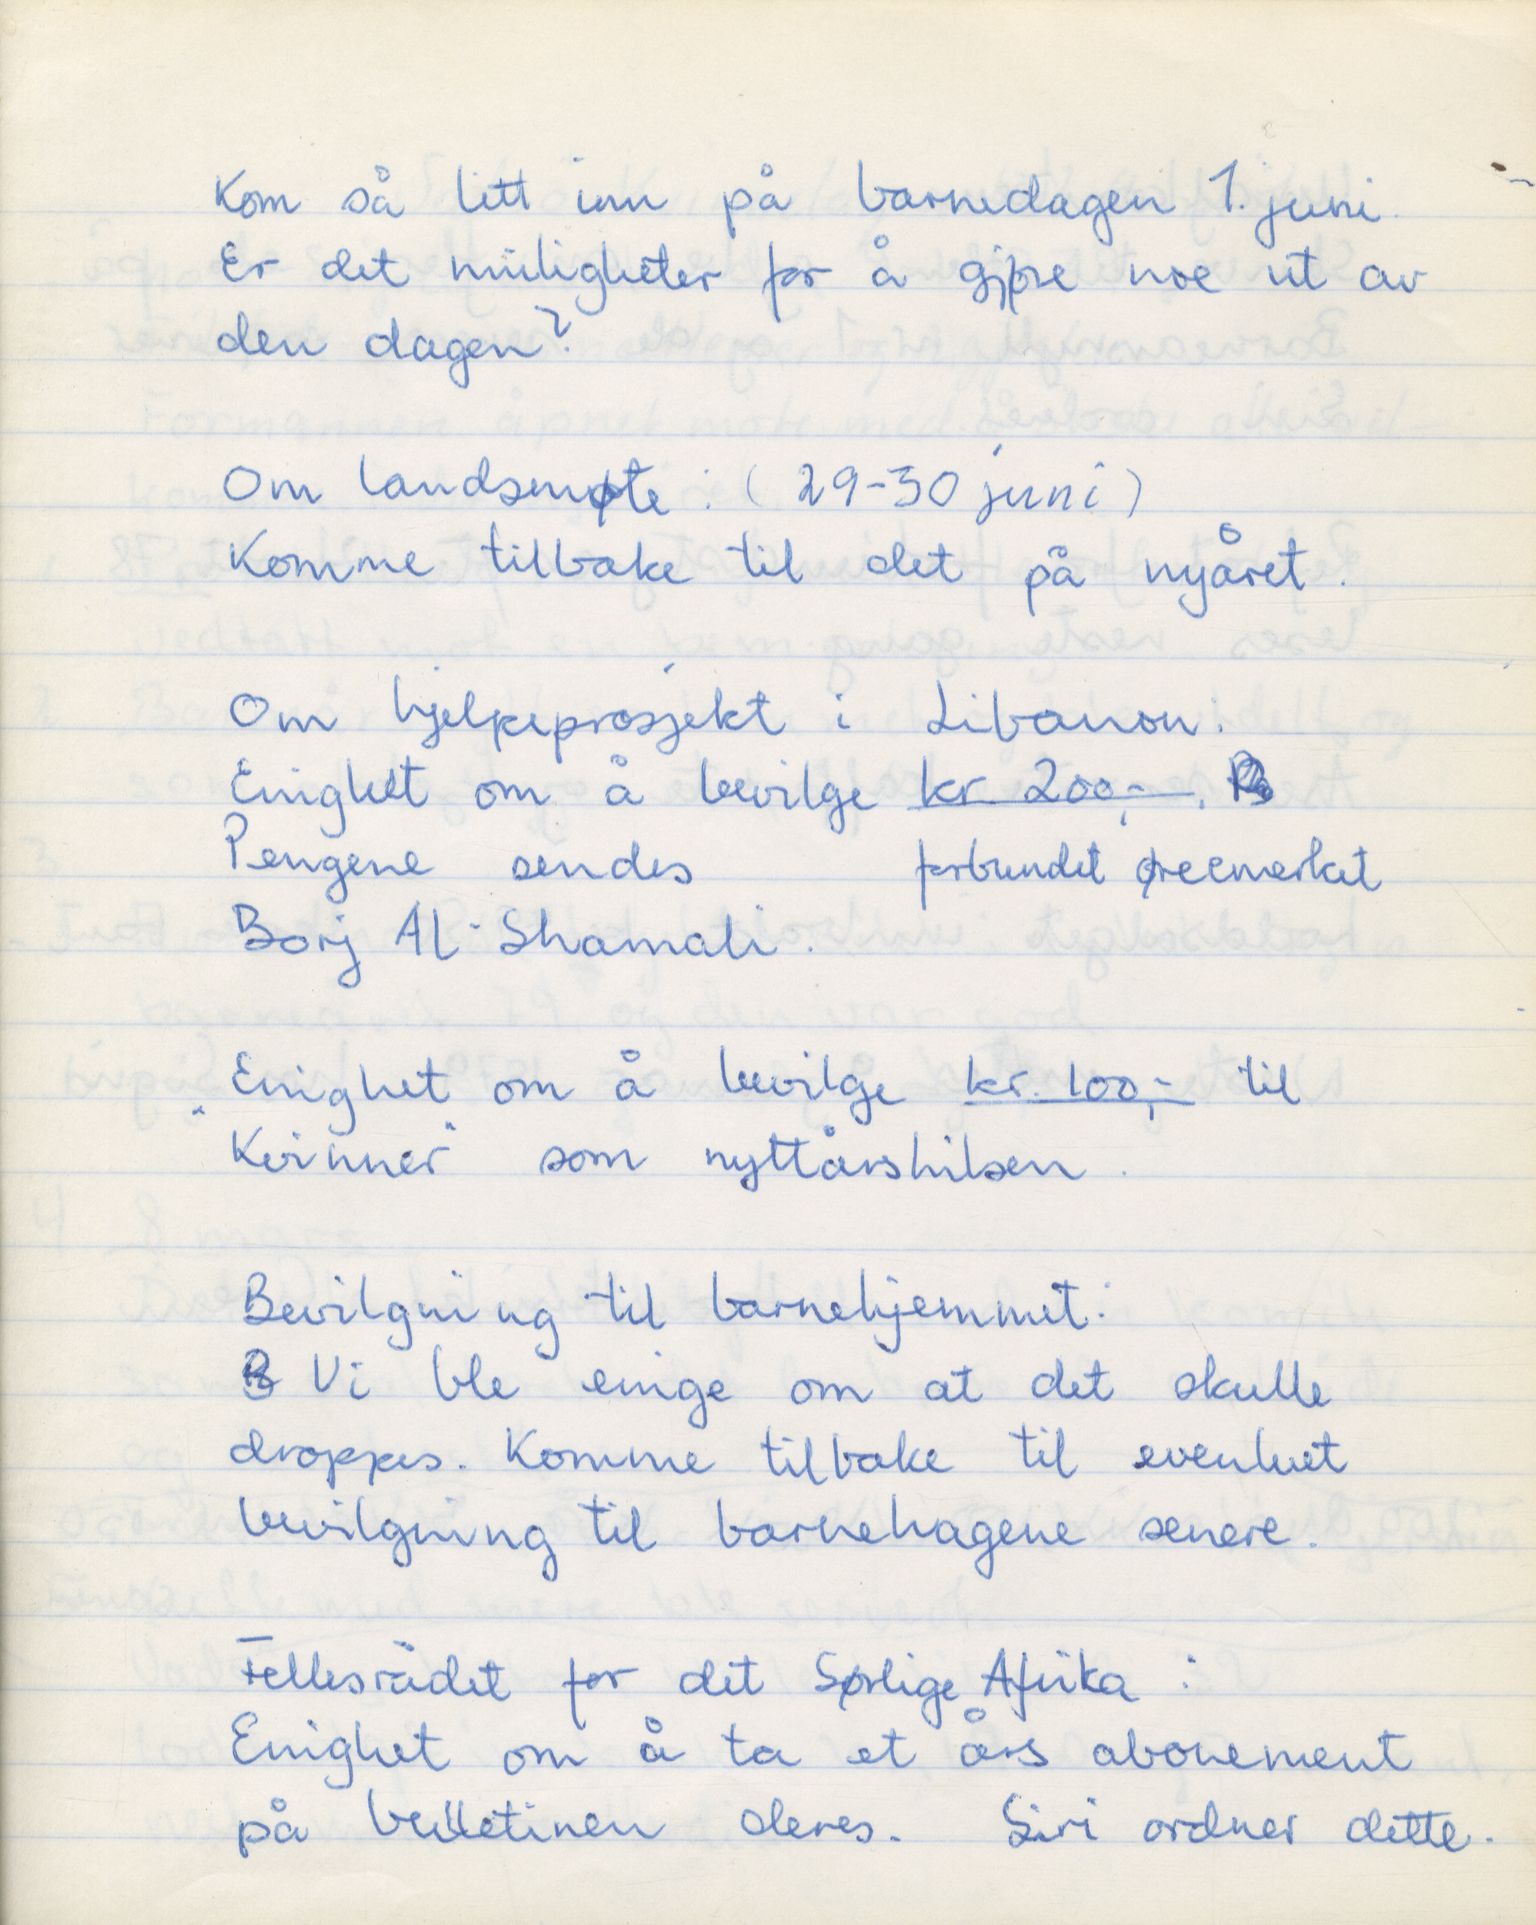 Kom så litt inn på barnedagen 1. juni.
Er det muligheter for å gjøre noe ut av
den dagen?
Om landsmøte : (29-30 juni)
Komme tilbake til det på nyåret.
Om hjelpeprosjekt i Libanon:
Enighet om å bevilge kr. 200,-.
Pengene sendes forbundet øreemerket
Borj Al-Shamali.
Enighet om å bevilge kr. 100,- til
"Kvinner" som nyttårshilsen.
Bevilgning til barnehjemmet:
Vi ble enige om at det skulle
droppes. Komme tilbake til evenluet
bevilgning til barnehagene senere.
Fellesrådet for det Sørlige Afrika :
Enighet om å ta et års abonement
på bulletinen deres. Siri ordner dette.